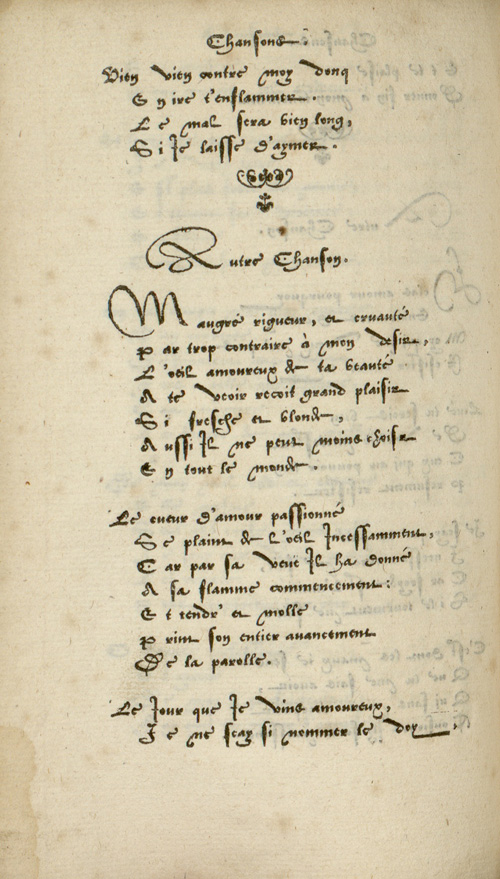 Chansons.
Vien vien contre moy donq
En ire t'enflammer.
Le mal sera bien long,
Si Je laisse d'aymer.
Autre Chanson.
Maugré rigueur, et cruauté
Par trop contraire à mon desir,
L'oeil amoureux de ta beauté
A te veoir recoit grand plaisir
Si fresche et blonde,
Aussi Il ne peut moins choisir
En tout le monde.
Le cueur d'amour passionné
Se plaint de l'oeil Incessamment,
Car par sa veue Il ha donné
A sa flamme commencement:
Et tendr' et molle
Print son entier avancement
De la parolle.
Le Jour que Je vins amoureux,
Je ne scay si nommer le doy,